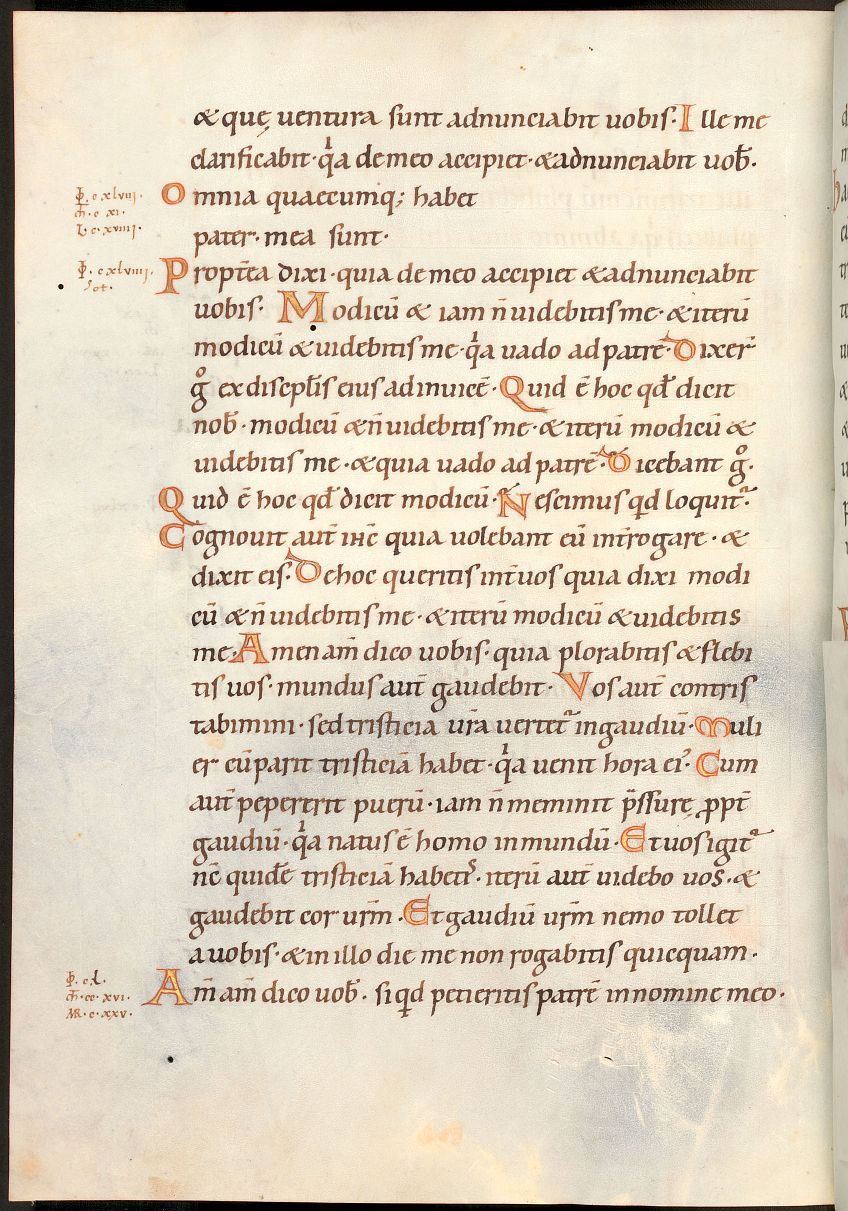 & quę uentura sunt adnunciabit uobis· Ille me
clarificabit· qͥa de meo accipiet· & adnunciabit uob̄·
Ꝋ· c xlviii·
m̄· c xi·
L· c· xviiii·
Omnia quaecumq; habet
pater· mea sunt·
Ꝋ· c xlviiii·
Sot·
Propt̄ea dixi· quia de meo accipiet & adnunciabit
uobis· Modicū & iam n̄ uidebitis me· & iterū
modicū & uidebitis me· qͥa uado ad patrē· Dixer̄
gͦ ex discipl̄is eius adinuicē· Quid ē hoc qd̄ dicit
nob̄· modicū & n̄ uidebitis me· & iterū modicū &
uidebitis me· & quia uado ad patrē· Dicebant gͦ·
Quid ē hoc qd̄ dicit modicū· Nescimus qd loquit᷑·
Cognouit aut̄ ihc̄ quia uolebant eū int̄rogare· &
dixit eis· De hoc queritis int̄ uos quia dixi modi
cū & n̄ uidebitis me· & iterū modicū & uidebitis
me· Amen am̄ dico uobis· quia plorabitis & flebi
tis uos· mundus aut̄ gaudebit· Vos aut̄ contris
tabimini· sed tristicia ur̄a uertet᷑ in gaudiū· Muli
er cū parit tristiciā habet· qͥa uenit hora ei᷒· Cum
aut̄ pepererit puerū· iam n̄ meminit p̄ssurę ꝓpt̄
gaudiū· qͥa natus ē homo in mundū· Et uos igit᷑
nc̄ quidē tristiciā habetis· iterū aut̄ uidebo uos· &
gaudebit cor ur̄m· Et gaudiū ur̄m nemo tollet
a uobis· & in illo die me non rogabitis quicquam·
Ꝋ· c l·
m̄· cc xvi·
MR· c· xxv·
Am̄ am̄ dico uob̄· si qd petieritis patrē in nomine meo·